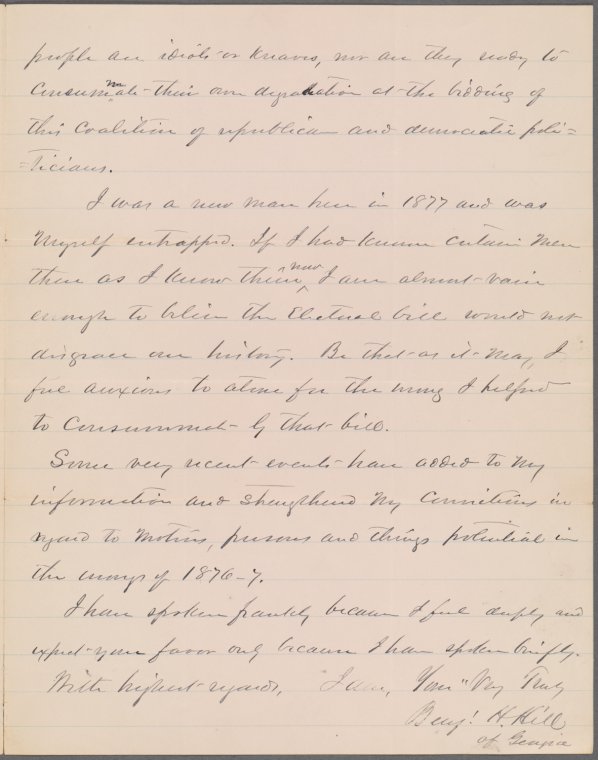 people are idiots or knaves, nor are they ready to
consummate their own degradation at the bidding of
this coalition of republican and democratic poli=
=ticians.
I was a new man here in 1877 and was
myself entrapped. If I had known certain men
then as I know them now, I am almost vain
enough to believe the Electoral bill would not
disgrace our history. Be that as it may, I
feel anxious to atone for the wrong I helped
to consummate by that bill.
Some very recent events have added to my
information and strengthened my convictions in
regard to motives, persons and things potential in
the wrongs of 1876-7.
I have spoken frankly because I feel deeply and
expect your favor only because I have spoken briefly.
With highest regards, I am, Yours Very Truly
Benj! H. Hill
of Georgia